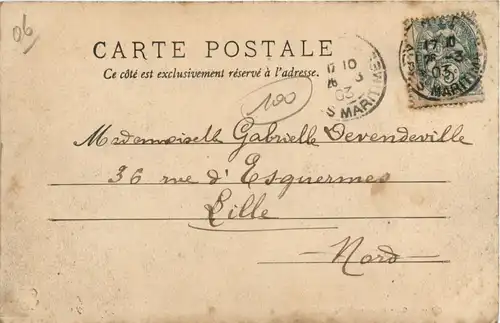 06
CARTE POSTALE
Ce côté est exclusivement réservé à l'adresse.
17 10
26 -3
03
S MARITIME
17 10
26 -3
03
ALPES MARITIM
100
Mademoiselle Gabrielle Devendeville
36 rue d'Esquermes
Lille
Nord